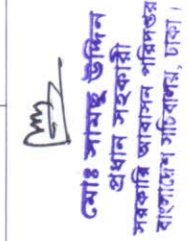 মোঃ সামছু উদ্দিন
প্রধান সহকারী
সরকারি আবাসন পরিদপ্তর
বাংলাদেশ সচিবালয়, ঢাকা।